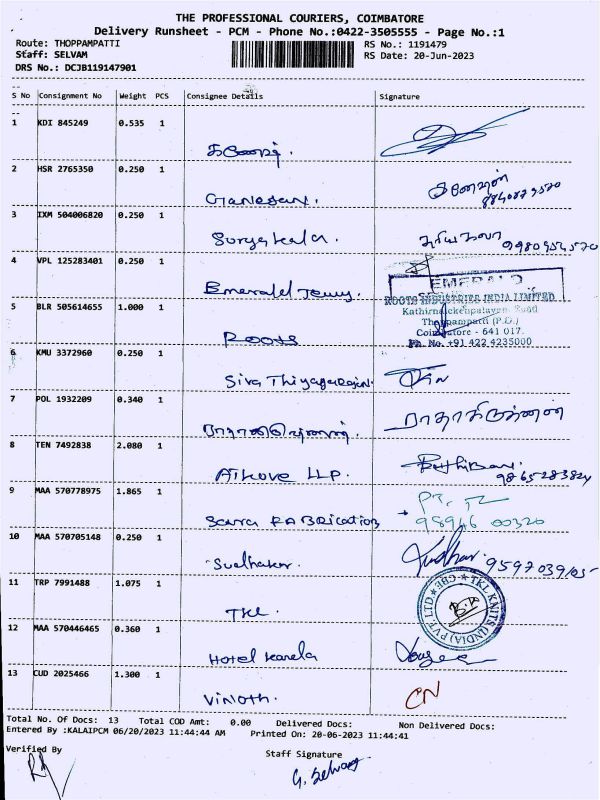 THE PROFESSIONAL COURIERS, COIMBATORE
Delivery Runsheet - PCM - Phone No.:0422-3505555 - Page No.:1
Route: THOPPAMPATTI RS No.: 1191479
Staff: SELVAM RS Date: 20-Jun-2023
DRS No.: DCJB119147901
S No Consignment No Weight PCS Consignee Details Signature
1 KDI 845249 0.535 1
2 HSR 2765350 0.250 1
Ganesan. கணேஷன்
3 IXM 504006820 0.250 1
Suryakala. சூரியகலா 9980954570
4 VPL 125283401 0.250 1
Emerald
EMERALD
5 BLR 505614655 1.000 1
ROOTS INDUSTRIES INDIA LIMITED
Kathirnaickenpalayam Road
Thoppampatti (P.O.)
Coimbatore - 641 017.
Ph. No. +91 422 4235000
ROOTS
6 KMU 3372960 0.250 1
Siva Thiyagarajan.
7 POL 1932209 0.340 1
ராதாகிருஷ்ணன்
8 TEN 7492838 2.080 1
LLP. 9865283824
9 MAA 570778975 1.865 1
FABRication 98946 00320
10 MAA 570705148 0.250 1
Sudhakar. 9597039105
11 TRP 7991488 1.075 1
TKL KNITS (INDIA) PVE LTD ★ CBE ★
TKL
12 MAA 570446465 0.360 1
Hotel
13 CUD 2025466 1.300 1
Vinoth. CN
Total No. Of Docs: 13 Total COD Amt: 0.00 Delivered Docs: Non Delivered Docs:
Entered By :KALAIPCM 06/20/2023 11:44:44 AM Printed On: 20-06-2023 11:44:41
Verified By
Staff Signature
G. Selvam